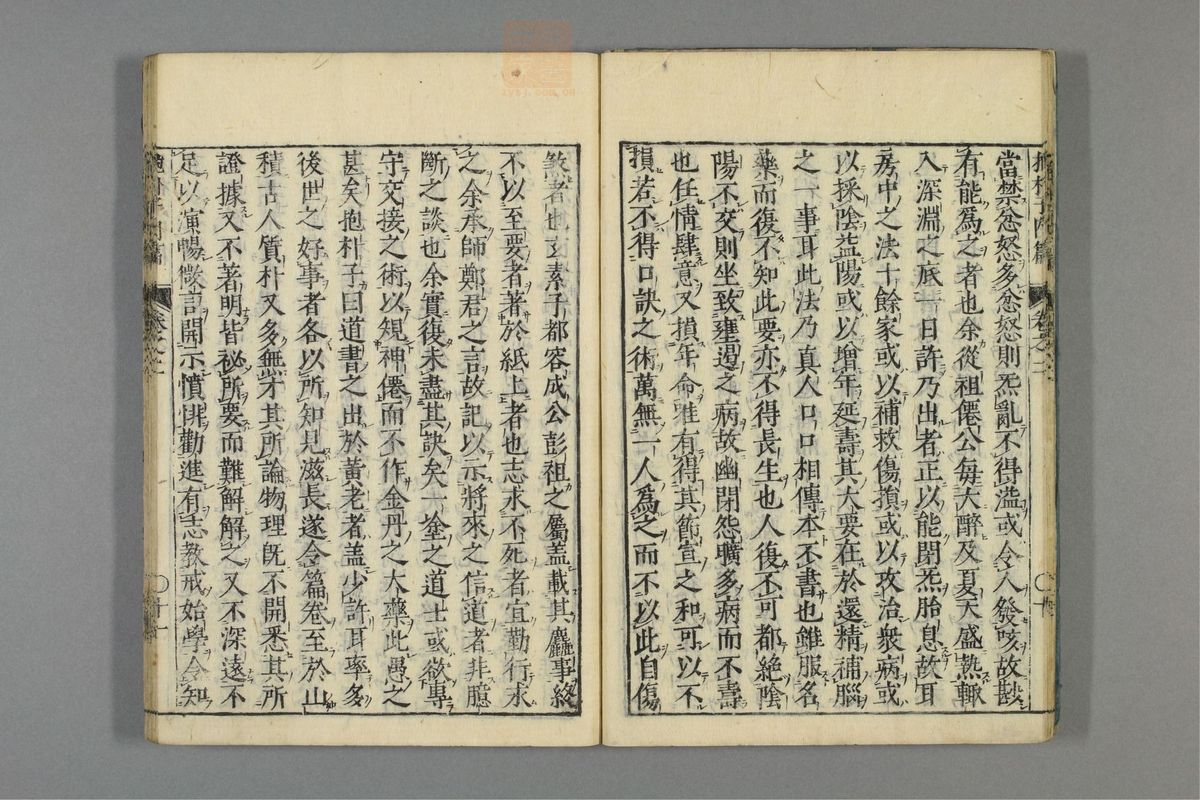 抱朴子內篇 卷之二 〇十
當禁忿怒多忿怒則炁亂不得溢或令人發咳故尠
有能為之者也余從祖僊公每大醉及夏天盛熱輙
入深淵之底一日許乃出者正以能閉炁胎息故耳
房中之法十餘家或以補救傷損或以攻治衆病或
以採陰益陽或以增年延壽其大要在於還精補腦
之一事耳此法乃真人口口相傳本不書也雖服名
藥而復不知此要亦不得長生也人復不可都絕陰
陽不交則坐致壅遏之病故幽閉怨曠多病而不壽
也任情肆意又損年命唯有得其節宣之和可以不
損若不得口訣之術萬無一人為之而不以此自傷
煞者也玄素子都容成公彭祖之屬盖載其麤事終
不以至要者著於紙上者也志求不死者宜勤行求
之余承師鄭君之言故記以示將來之信道者非臆
斷之談也余實復未盡其訣矣一塗之道士或欲專
守交接之術以規神僊而不作金丹之大藥此愚之
甚矣抱朴子曰道書之出於黃老者盖少許耳率多
後世之好事者各以所知見滋長遂令篇卷至於山
積古人質朴又多無才其所論物理既不開悉其所
證據又不著明皆祕所要而難解解之又不深遠不
足以演暢微言開示憤悱勸進有志教戒始學令知
抱朴子內篇 卷之二 〇十一